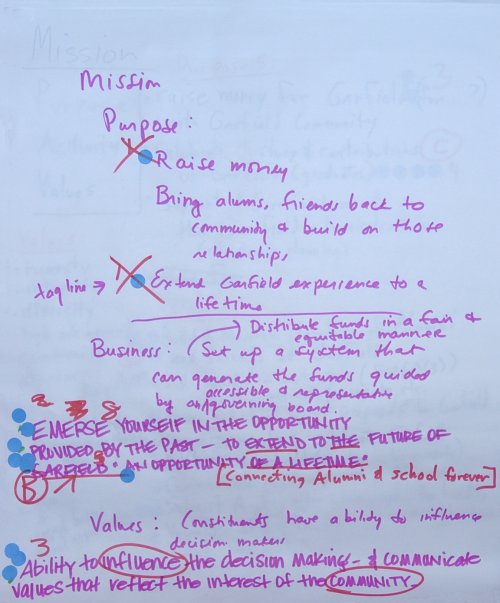 Mission
Purpose:
Raise money
Bring alums, friends back to
community & build on those
relationships
tag line → Extend Garfield experience to a
lifetime
Distribute funds in a fair &
equitable manner
Business: Set up a system that
can generate the funds guided
accessible & representative
by an governing board.
2 8
EMERSE YOURSELF IN THE OPPORTUNITY
PROVIDED BY THE PAST – TO EXTEND TO THE FUTURE OF
GARFIELD AN OPPORTUNITY OF A LIFETIME
B [Connecting Alumni & school forever]
Values: Constituents have a bility to influence
decision makers
3
Ability to influence the decision making – & COMMUNICATE
VALUES THAT REFLECT THE INTEREST OF THE COMMUNITY